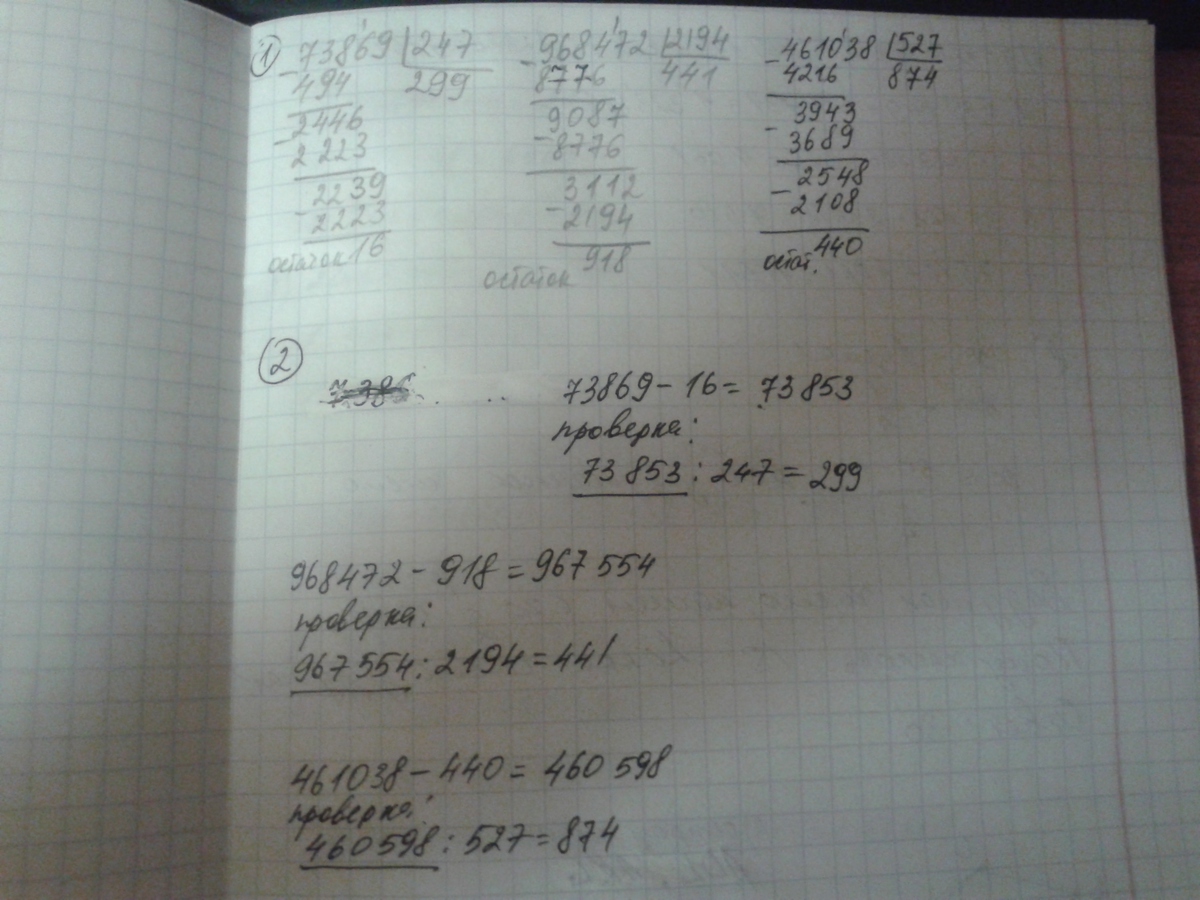 1) 73869 | 247
- 494 299
2446
- 2223
2239
- 2223
остаток 16
- 968472 | 2194
8776 441
9087
- 8776
3112
- 2194
918
остаток
- 461038 | 527
4216 874
3943
- 3689
2548
- 2108
остат. 440
2
73869 - 16 = 73853
проверка:
73853 : 247 = 299
968472 - 918 = 967554
проверка:
967554 : 2194 = 441
461038 - 440 = 460598
проверка:
460598 : 527 = 874